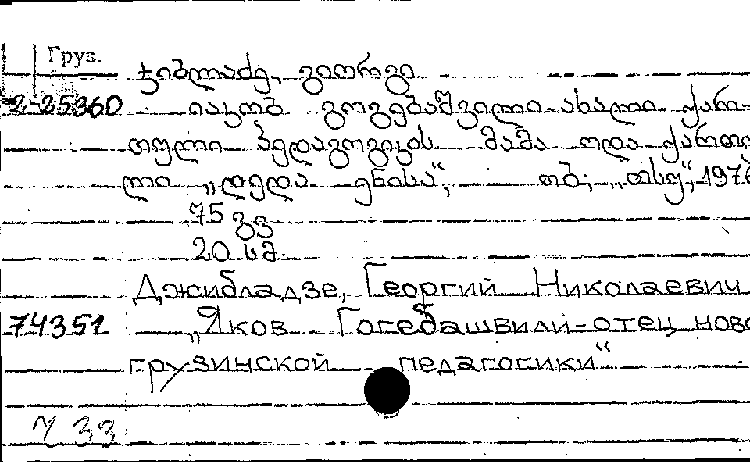 Груз.
ჯიბლაძე, გიორგი
2-25360 იაკობ გოგებაშვილი-ახალი ქარ-
თული პედაგოგიკის მამა და ქართუ
ლი „დედა ენისა“, თბ; „თსუ“, 1976
75 გვ
20 სმ
Джибладзе, Георгий Николаевич
74351 „Яков Гогебашвили-отец ново
грузинской педагогики“
У 33